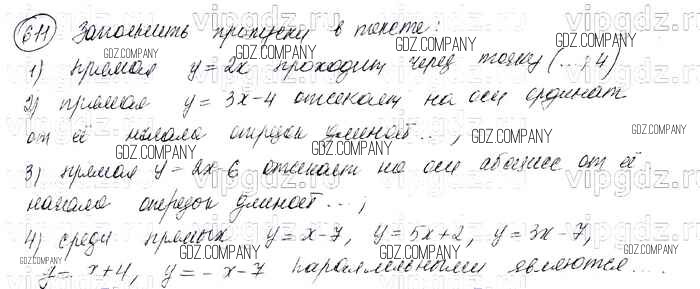 611 Заполнить пропуски в тексте:
1) прямая y = 2x проходит через точку (...; 4)
2) прямая y = 3x-4 отсекает на оси ординат
от её начала отрезок длиной ...;
3) прямая y = 2x-6 отсекает на оси абсцисс от её
начала отрезок длиной ...;
4) среди прямых y = x-7, y = 5x+2, y = 3x-7,
y = x+4, y = -x-7 параллельными являются ....
vipgdz.ru
GDZ.COMPANY